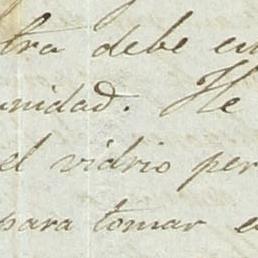 tra debe en
unidad. He
el vidrio per
para tomar e